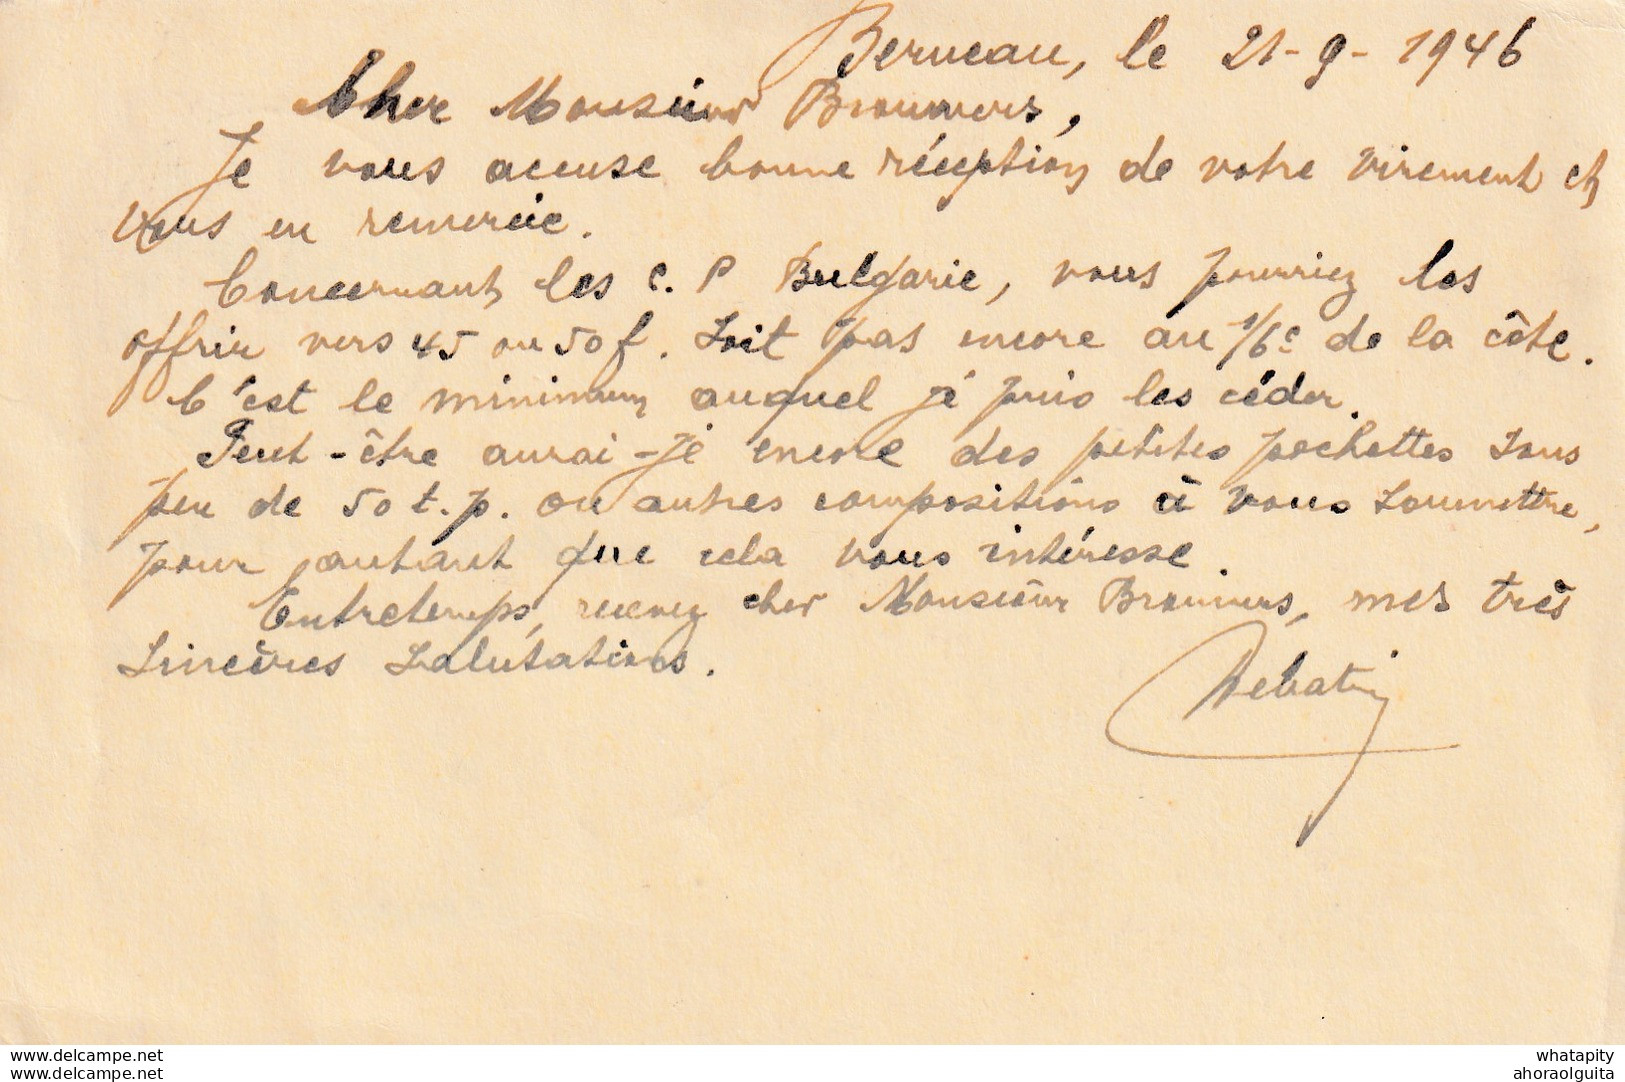 Berneau, le 21-9-1946
Cher Monsieur Brouwers,
Je vous accuse bonne réception de votre virement et
vous en remercie.
Concernant les C.P Bulgarie, vous pourriez les
offrir vers 45 ou 50 f. Soit pas encore au 1/6e de la côte.
C'est le minimum auquel je puis les céder.
Peut-être aurai-je encore des petites pochettes sous
peu de 50 t.p. ou autres compositions à vous soumettre,
pour autant que cela vous intéresse.
Entretemps, recevez cher Monsieur Brouwers, mes très
sincères salutations.
Debatty
www.delcampe.com
www.delcampe.com
whatapity
ahoraolguita